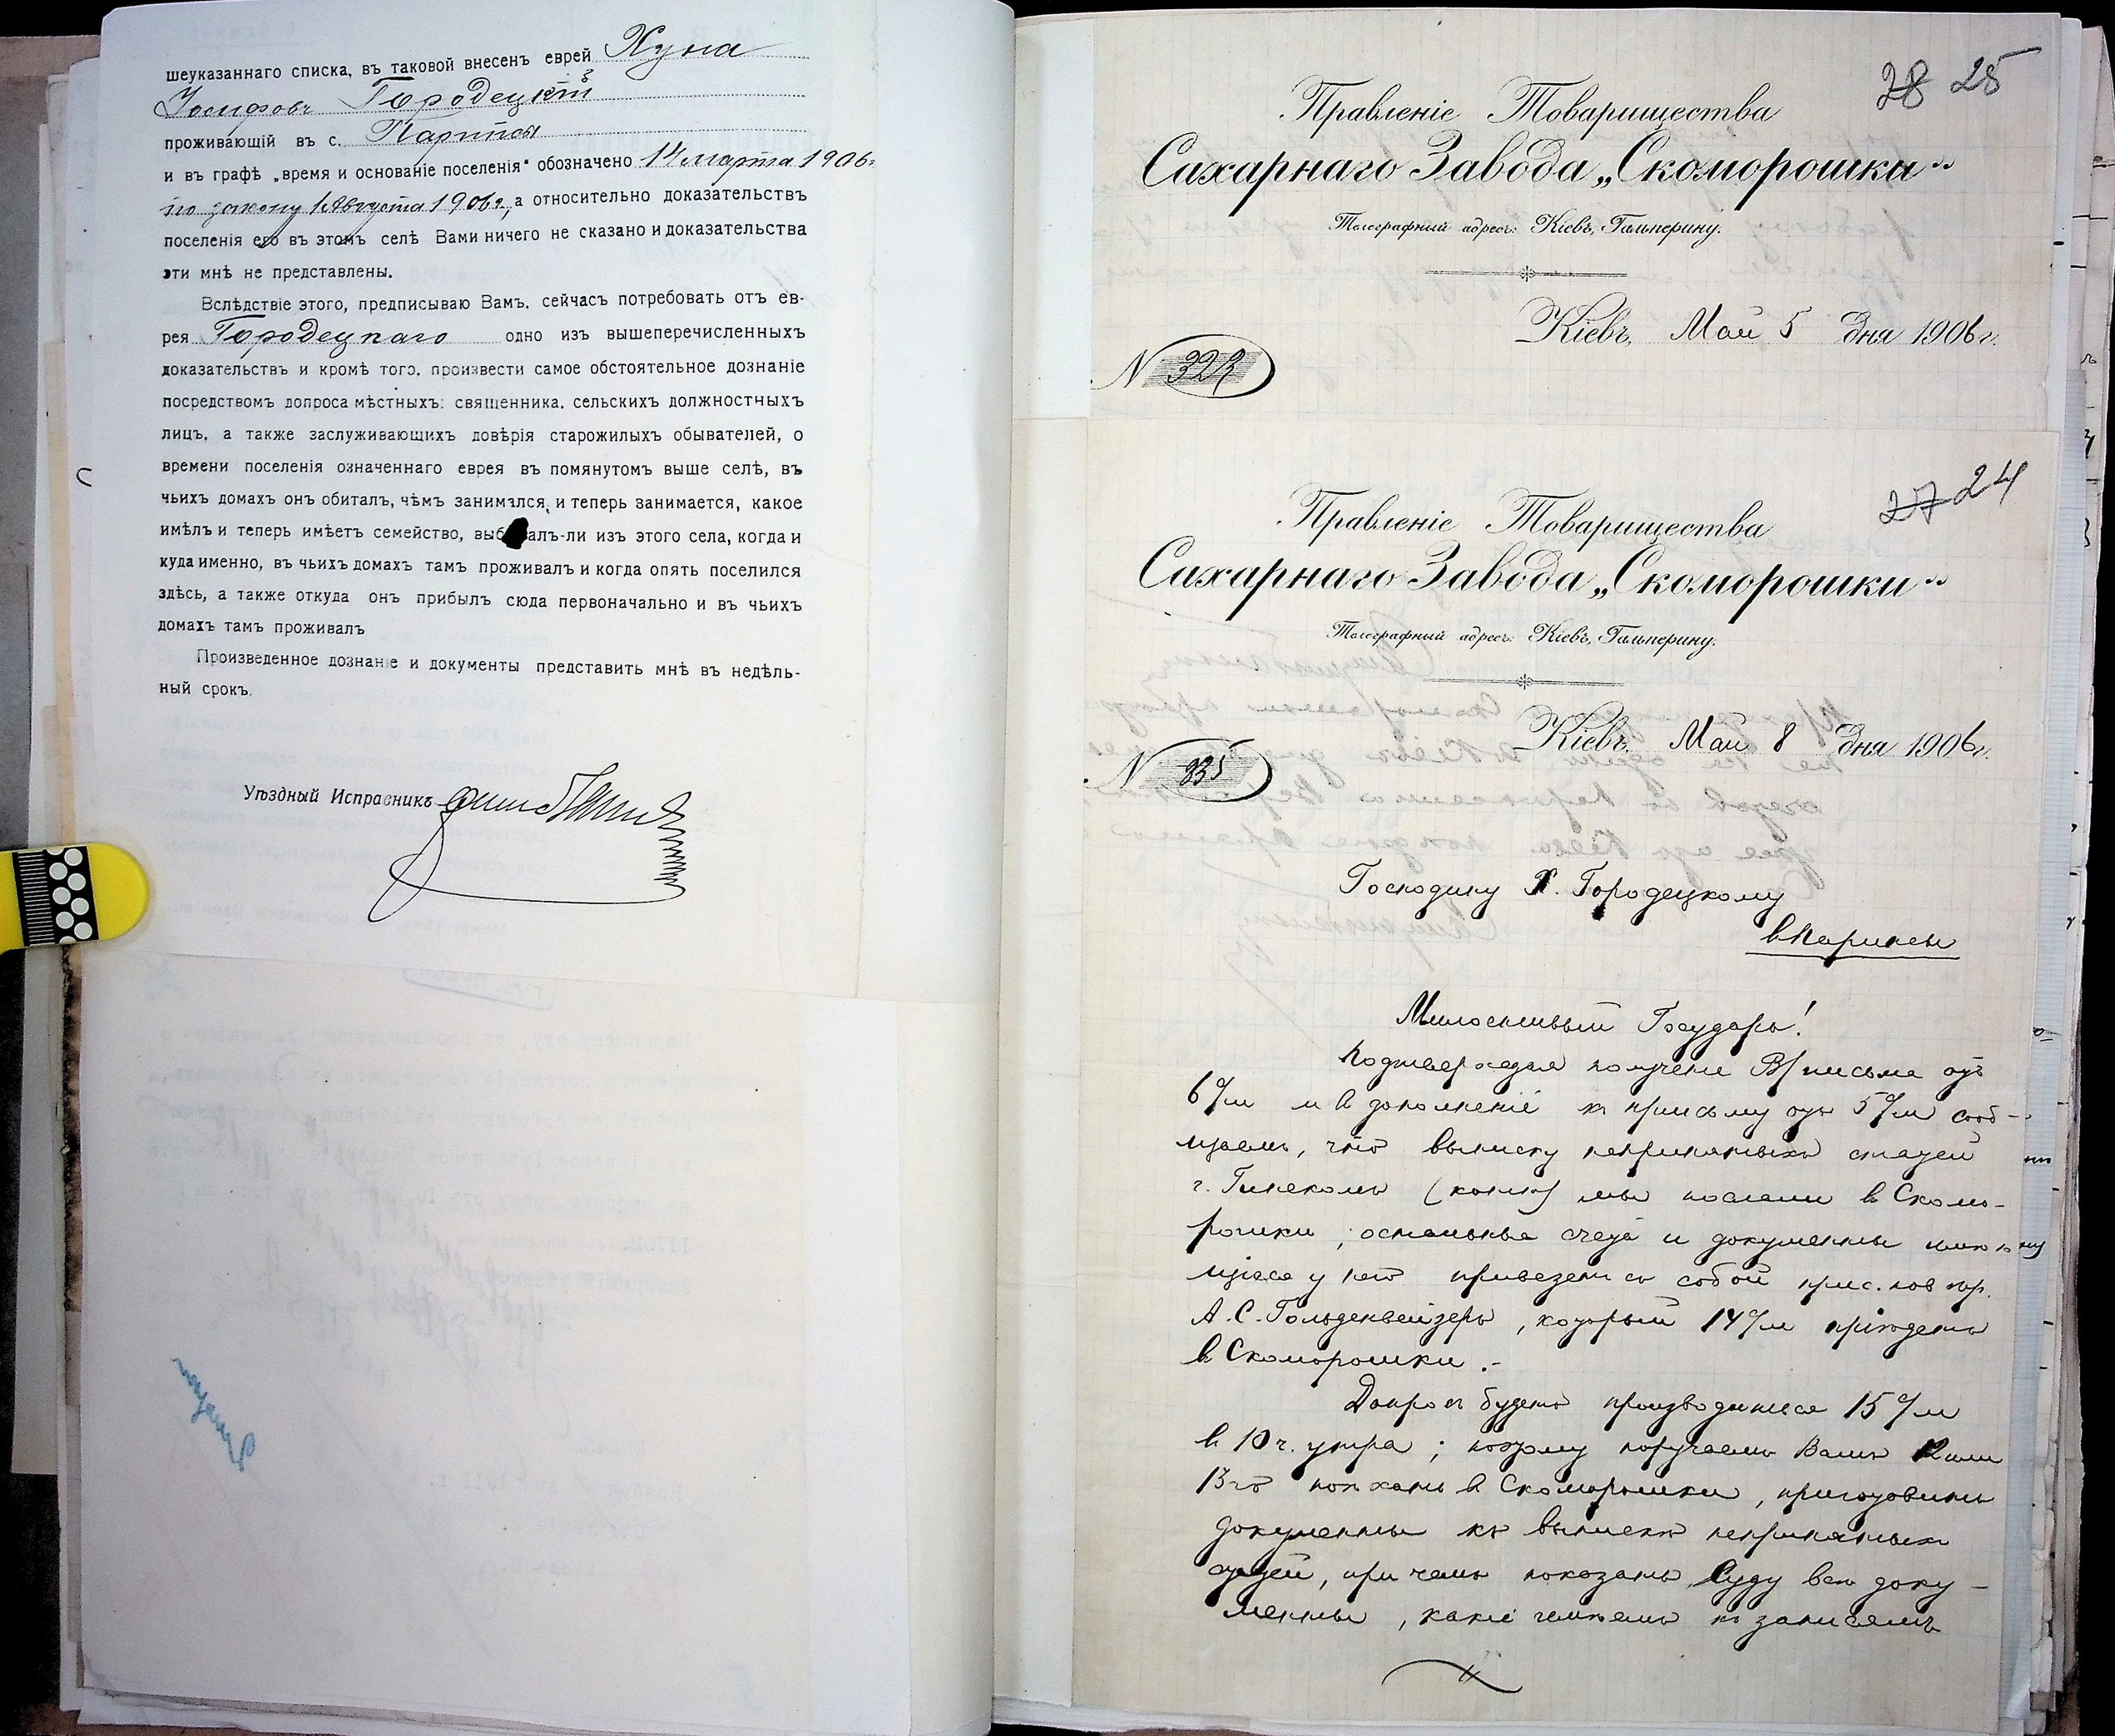 шеуказаннаго списка, въ таковой внесенъ еврей Хуна
Іосифовъ Городецкій
проживающій въ с. Паритсы
и въ графѣ „время и основаніе поселенія“ обозначено 14 марта 1906 г.
по закону 1 Августа 1906 г., а относительно доказательствъ
поселенія его въ этомъ селѣ Вами ничего не сказано и доказательства
эти мнѣ не представлены.
Вслѣдствіе этого, предписываю Вамъ, сейчасъ потребовать отъ ев-
рея Городецкаго одно изъ вышеперечисленныхъ
доказательствъ и кромѣ того, произвести самое обстоятельное дознаніе
посредствомъ допроса мѣстныхъ: священника, сельскихъ должностныхъ
лицъ, а также заслуживающихъ довѣрія старожилыхъ обывателей, о
времени поселенія означеннаго еврея въ помянутомъ выше селѣ, въ
чьихъ домахъ онъ обиталъ, чѣмъ занимался, и теперь занимается, какое
имѣлъ и теперь имѣетъ семейство, выбывалъ-ли изъ этого села, когда и
куда именно, въ чьихъ домахъ тамъ проживалъ и когда опять поселился
здѣсь, а также откуда онъ прибылъ сюда первоначально и въ чьихъ
домахъ тамъ проживалъ
Произведенное дознаніе и документы представить мнѣ въ недѣль-
ный срокъ.
Уѣздный Исправникъ
28 25
Правленіе Товарищества
Сахарнаго Завода „Скоморошки“
Телеграфный адресъ: Кіевъ, Гальперину.
Кіевъ, Май 5 дня 1906 г.
N 323
27 24
Правленіе Товарищества
Сахарнаго Завода „Скоморошки“
Телеграфный адресъ: Кіевъ, Гальперину.
Кіевъ, Май 8 дня 1906 г.
N 335
Господину Х. Городецкому
в Парипсы
Милостивый Государь!
Подтверждая получение В/ письма отъ
6 с/м и в дополненіе къ письму отъ 5 с/м сооб-
щаемъ, что выписку непринятыхъ статей
г. (копію) мы послали в Скомо-
рошки; остальные счета и документы имѣю-
щіеся у него привезетъ съ собой прис. пов. пр.
А. С. Гольденвейзеръ, который 14 с/м пріѣдетъ
в Скоморошки.-
Допросъ будетъ производиться 15 с/м
в 10 ч. утра; поэтому поручаемъ Вамъ 12 или
13-го поѣхать в Скоморошки, приготовить
документы къ выпискѣ непринятыхъ
статей, при чемъ показать Суду всѣ доку-
менты, какіе къ записямъ